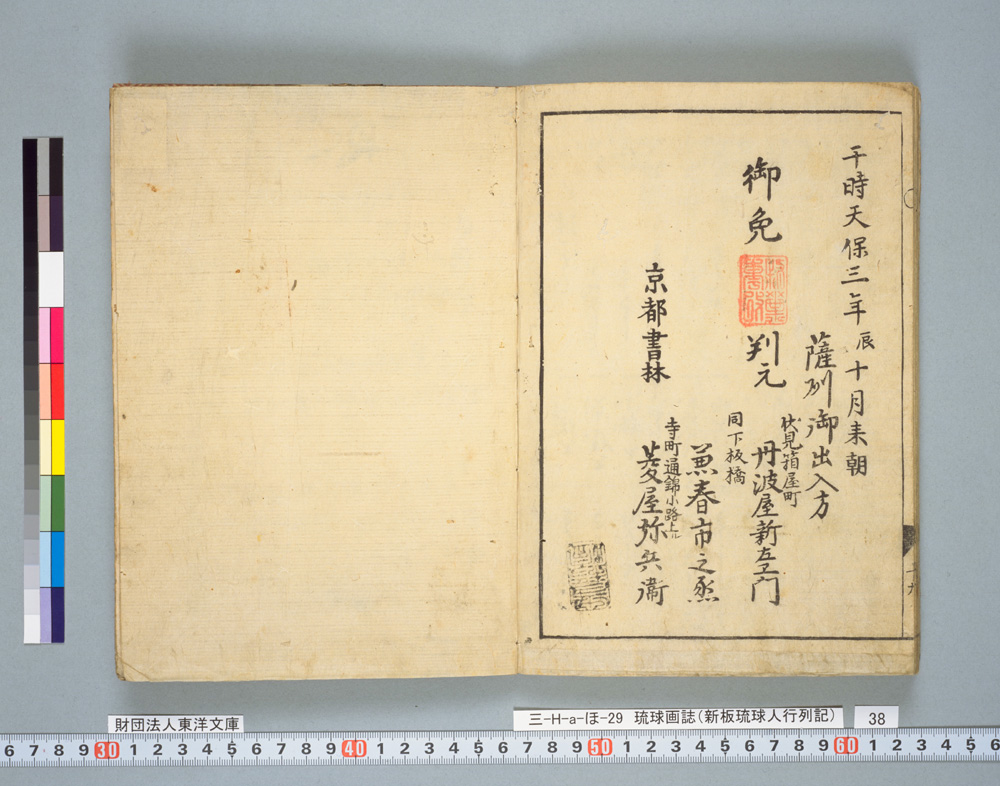 干時天保三年辰十月来朝
薩刕御出入方
御免
判元
伏見箱屋町
丹波屋新左エ門
同下板橋
菱春市之丞
京都書林
寺町通錦小路上ル
菱屋弥兵衞
財団法人東洋文庫
三-H-a-ほ-29 琉球画誌(新板琉球人行列記)
38
6 7 8 9 30 1 2 3 4 5 6 7 8 9 40 1 2 3 4 5 6 7 8 9 50 1 2 3 4 5 6 7 8 9 60 1 2 3 4 5 6